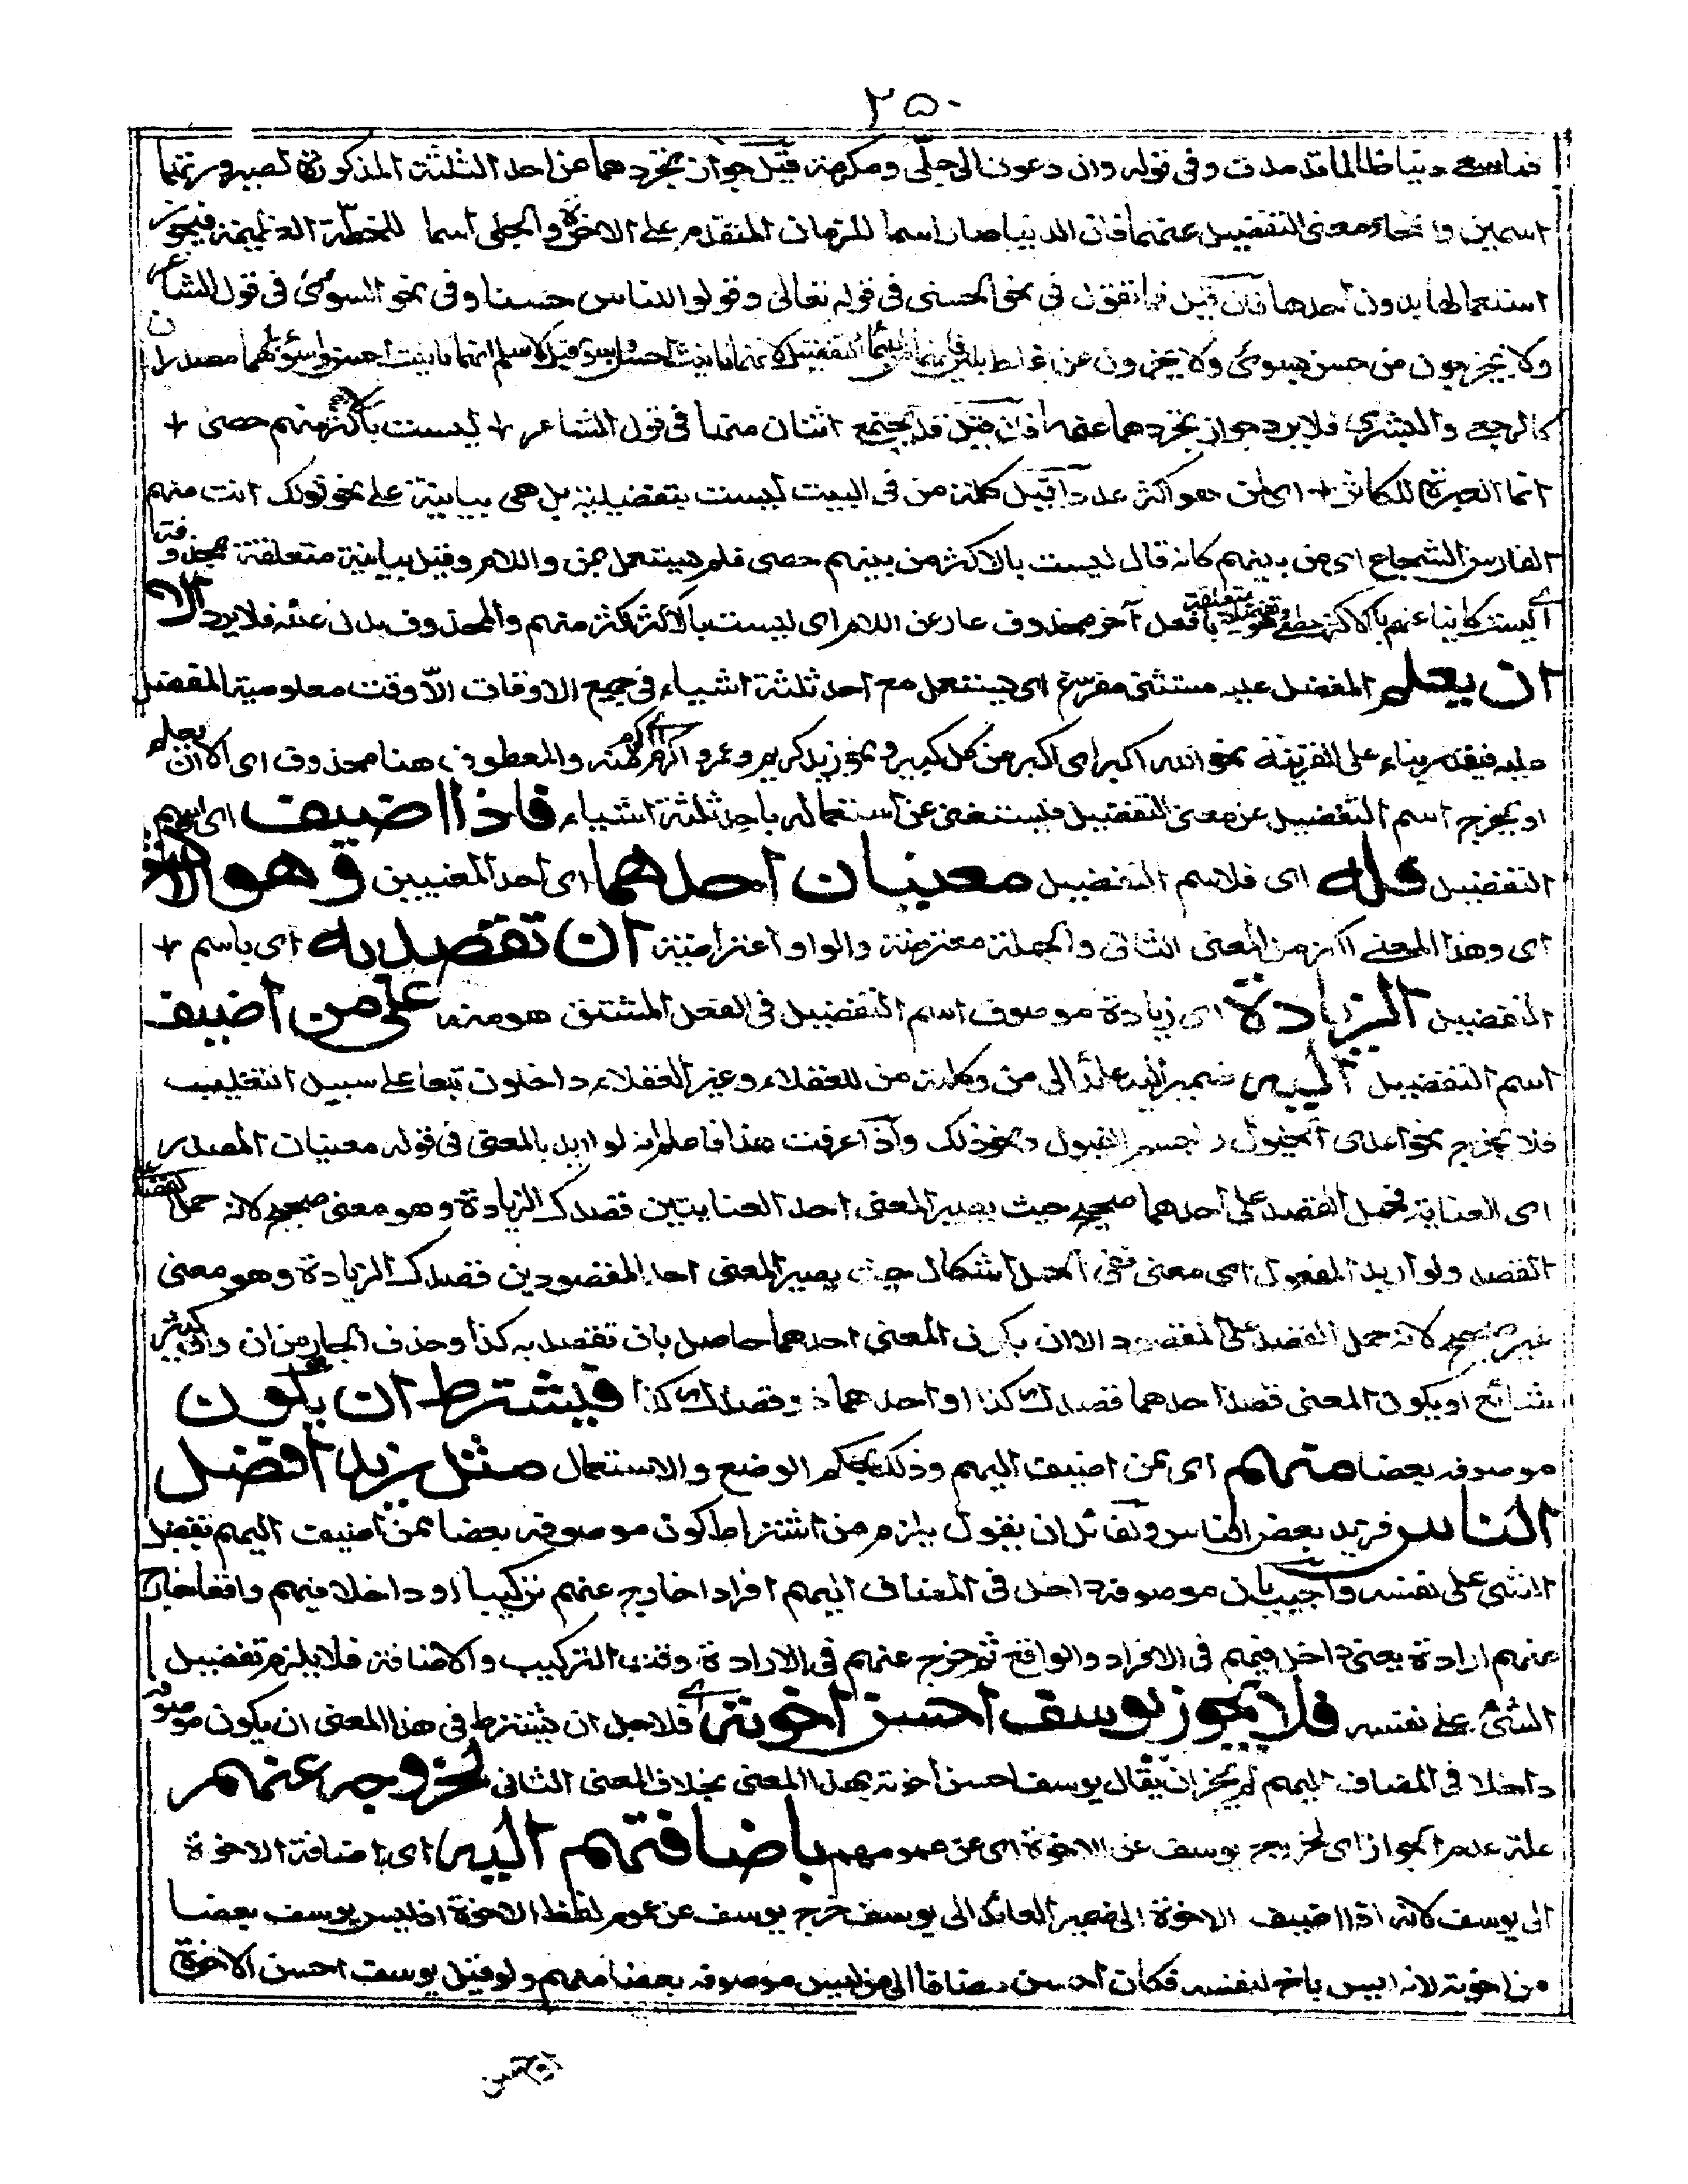 ٢٥٠
في سعي دنيا طالما قد مدت وفي قوله وان دعوت الى جلّى ومكرمة قيل جواز تجردهما عن احد الثلثة المذكورة لصيرورتهما
اسمين وانمحاء معنى التفضيل عنهما فان الدنيا صار اسما للزمان المتقدم على الاخرة والجلى اسما للخطة العظيمة فيجوز
استعمالها بدون احدها فان قيل فما تقول في نحو الحسنى في قوله تعالى وقولوا للناس حسنا وفي نحو السوئى في قول الشاعر
ولا يجزون من حسن بسوئى ولا يجزون عن غلظ بلين فانهما اسما التفضيل لانهما تانيث احسن واسوء قيل لا نسلم انهما تانيث احسن واسوء بل هما مصدران
كالرجعى والبشرى فلا يرد جواز تجردهما عنها فان قيل قد يجتمع اثنان منها في قول الشاعر + ليست بالاكثر منهم حصى +
انما العزة للكاثر + اى لمن هو اكثر عددا قيل كلمة من في البيت ليست بتفضيلية بل هي بيانية على نحو قولك انت منهم
الفارس الشجاع اى من بينهم كانه قال ليست بالاكثر من بينهم حصى فلم يستعمل بمن واللام وقيل بيانية متعلقة بمحذوف
بافعل آخر محذوف عار عن اللام اى ليست بالاكثر اكثر منهم والمحذوف بدل عنه فلا يرد الا
ان يعلم المفضل عليه مستثنى مفرغ اى يستعمل مع احد ثلثة اشياء في جميع الاوقات الّا وقت معلومية المفضل
عليه فيقدر بناء على القرينة نحو الله اكبر اى اكبر من كل كبير ونحو زيد كريم وعمرو اكرم اى اكرم منه والمعطوف هنا محذوف اى الا ان يعلم
او يخرج اسم التفضيل عن معنى التفضيل فيستغنى عن استعماله باحد ثلثة اشياء فاذا اضيف اى اسم
التفضيل فله اى فلاسم التفضيل معنيان احدهما اى احد المعنيين وهو الاكثر
اى وهذا المعنى اكثر من المعنى الثاني والجملة معترضة والواو اعتراضية ان تقصد به اى باسم +
التفضيل الزيادة اى زيادة موصوف اسم التفضيل في الفعل المشتق هو منه على من اضيف
اسم التفضيل اليه ضمير اليه عائد الى من وكلمة من للعقلاء وغير العقلاء داخلون تبعا على سبيل التغليب
فلا يخرج نحو اعدى الخيول واجسم الفيول ونحو ذلك واذا عرفت هذا فاعلم انه لو اريد بالمعنى في قوله معنيان المصدر
اى العناية فحمل القصد على احدهما صحيح حيث يصير المعنى احد العنايتين قصدك الزيادة وهو معنى صحيح لانه حمل القصد على
القصد ولو اريد المفعول اى معنى ففي الحمل اشكال حيث يصير المعنى احد المقصودين قصدك الزيادة وهو معنى
غير صحيح لانه حمل القصد على المقصود الا ان يكون المعنى احدهما حاصل بان تقصد به كذا وحذف الجار من ان وانّ كثير
شائع او يكون المعنى قصد احدهما قصدك كذا او احدهما ذو قصدك كذا فيشترط ان يكون
موصوفه بعضا منهم اى ممن اضيف اليهم وذلك بحكم الوضع والاستعمال مثل زيد افضل
الناس فزيد بعض الناس ولقائل ان يقول يلزم من اشتراط كون موصوفه بعضا ممن اضيف اليهم تفضيل
الشئ على نفسه واجيب بان موصوفه داخل في المضاف اليهم افرادا خارج عنهم تركيبا او داخلا فيهم واقعا خارج
عنهم ارادة يعني داخل فيهم في الافراد والواقع ثم خرج عنهم في الارادة وقت التركيب والاضافة فلا يلزم تفضيل
الشئ على نفسه فلا يجوز يوسف احسن اخوته اى فلاجل ان يشترط في هذا المعنى ان يكون موصوفه
داخلا في المضاف اليهم لم يجز ان يقال يوسف احسن اخوته بهذا المعنى بخلاف المعنى الثاني لخروجه عنهم
علة عدم الجواز اى لخروج يوسف عن الاخوة اى عن عمومهم باضافتهم اليه اى باضافة الاخوة
الى يوسف لانه اذا اضيف الاخوة الى ضمير العائد الى يوسف خرج يوسف عن عموم لفظ الاخوة اذ ليس يوسف بعضا
من اخوته لانه ليس باخ لنفسه فكان احسن مضافا الى من ليس موصوفه بعضا منهم ولو قيل يوسف احسن الاخوة